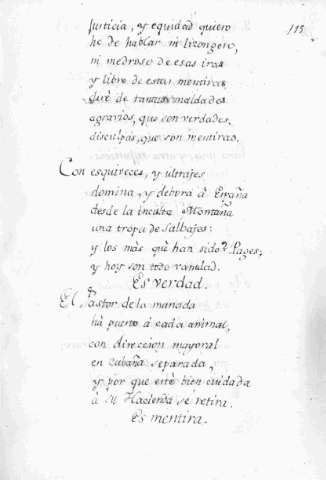 justicia, y equidad quiero
115
he de hablar ni lizongero,
ni medroso de esas iras
y libre de estas mentiras
diré de tantas maldades
agravios, que son verdades,
disculpas, que son mentiras.
Con esquireces, y ultrajes
domina, y debora à España
desde la inculta Montaña
una tropa de Salbajes:
y los màs què han sido Pages;
y hoy son todo vanidad.
Es verdad.
El Pastor de la manada
hà puesto à cada animal,
con direccion mayoral
en cabaña separada,
y por que estè bien cuidada
à su Hacienda se retira.
Es mentira.